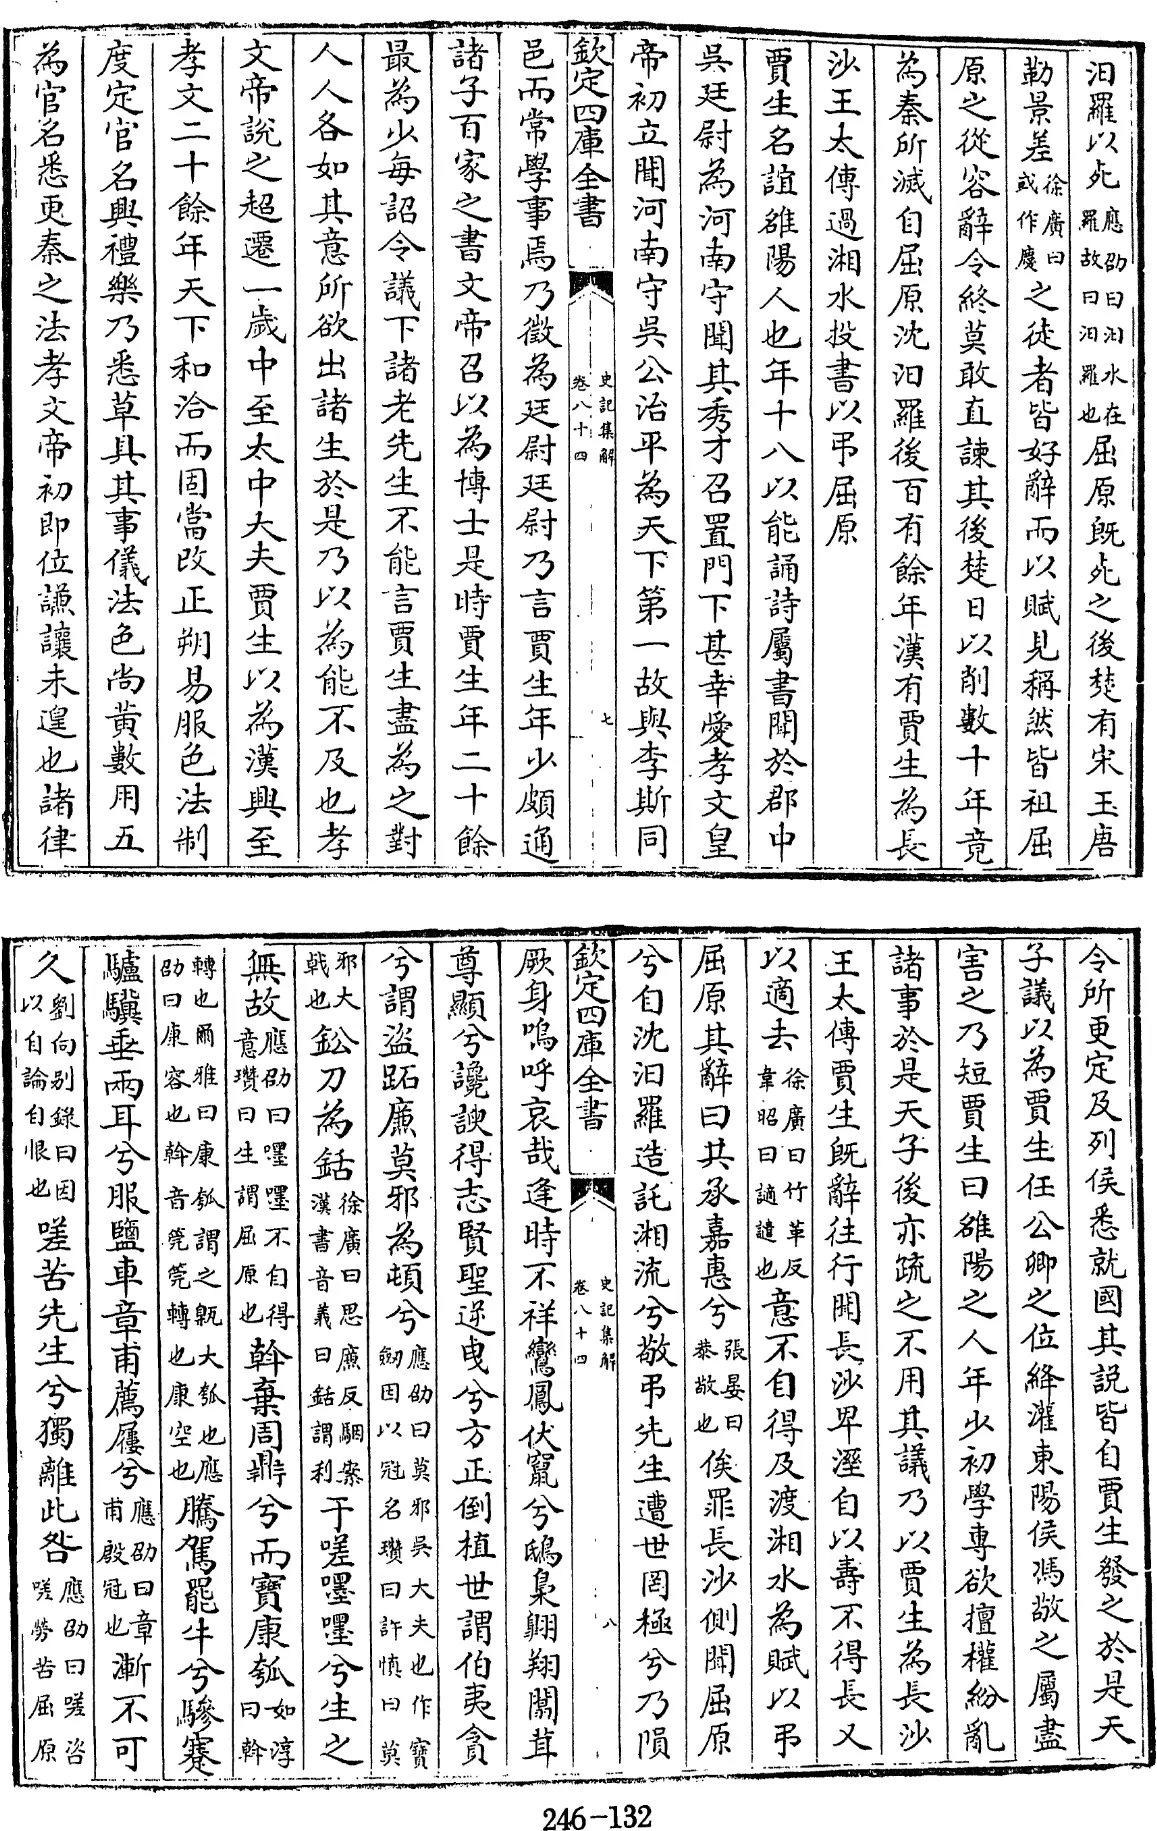 汨羅以死應劭曰汨水在羅故曰汨羅也屈原既死之後楚有宋玉唐
勒景差徐廣曰或作慶之徒者皆好辭而以賦見稱然皆祖屈
原之從容辭令終莫敢直諫其後楚日以削數十年竟
為秦所滅自屈原沈汨羅後百有餘年漢有賈生為長
沙王太傅過湘水投書以弔屈原
賈生名誼雒陽人也年十八以能誦詩屬書聞於郡中
吳廷尉為河南守聞其秀才召置門下甚幸愛孝文皇
帝初立聞河南守吳公治平為天下第一故與李斯同
欽定四庫全書
史記集解
卷八十四
七
邑而常學事焉乃徵為廷尉廷尉乃言賈生年少頗通
諸子百家之書文帝召以為博士是時賈生年二十餘
最為少每詔令議下諸老先生不能言賈生盡為之對
人人各如其意所欲出諸生於是乃以為能不及也孝
文帝說之超遷一歲中至太中大夫賈生以為漢興至
孝文二十餘年天下和洽而固當改正朔易服色法制
度定官名興禮樂乃悉草具其事儀法色尚黃數用五
為官名悉更秦之法孝文帝初即位謙讓未遑也諸律
令所更定及列侯悉就國其說皆自賈生發之於是天
子議以為賈生任公卿之位絳灌東陽侯馮敬之屬盡
害之乃短賈生曰雒陽之人年少初學專欲擅權紛亂
諸事於是天子後亦疏之不用其議乃以賈生為長沙
王太傅賈生既辭往行聞長沙卑溼自以壽不得長又
以適去徐廣曰竹革反韋昭曰謫譴也意不自得及渡湘水為賦以弔
屈原其辭曰共承嘉惠兮張晏曰恭敬也俟罪長沙側聞屈原
兮自沈汨羅造託湘流兮敬弔先生遭世罔極兮乃隕
欽定四庫全書
史記集解
卷八十四
八
厥身嗚呼哀哉逢時不祥鸞鳳伏竄兮鴟梟翺翔闒茸
尊顯兮讒諛得志賢聖逆曳兮方正倒植世謂伯夷貪
兮謂盜跖廉莫邪為頓兮應劭曰莫邪吳大夫也作寶劒因以冠名瓚曰許慎曰莫
邪大戟也鈆刀為銛徐廣曰思廉反駰案漢書音義曰銛謂利于嗟嚜嚜兮生之
無故應劭曰嚜嚜不自得意瓚曰生謂屈原也斡棄周鼎兮而寶康瓠如淳曰斡
轉也爾雅曰康瓠謂之甈大瓠也應劭曰康容也斡音筦筦轉也康空也騰駕罷牛兮驂蹇
驢驥垂兩耳兮服鹽車章甫薦屨兮應劭曰章甫殷冠也漸不可
久劉向别錄曰因以自諭自恨也嗟苦先生兮獨離此咎應劭曰嗟咨嗟勞苦屈原
246-132